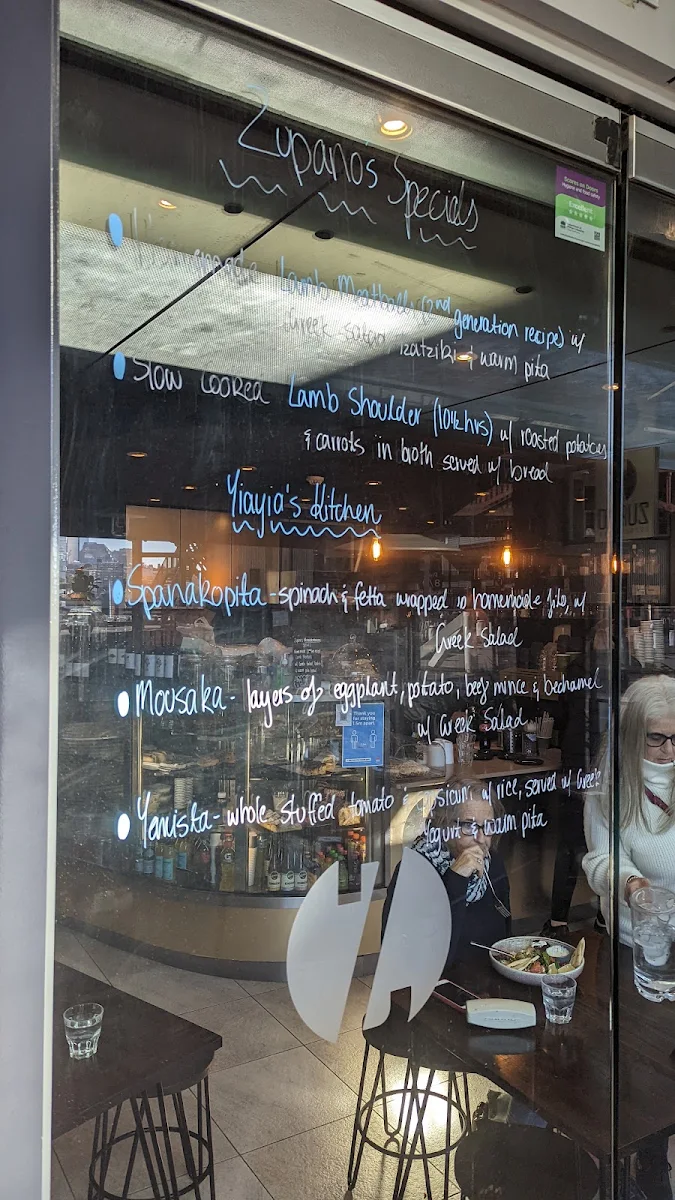 Zupano's Specials
Homemade Lamb Meatballs (2nd generation recipe) w/
Greek salad, tzatziki & warm pita
Slow Cooked Lamb Shoulder (10½hrs) w/ roasted potatoes
& carrots in broth served w/ bread
Yiayia's Kitchen
Spanakopita - spinach & fetta wrapped in homemade filo, w/
Greek Salad
Mousaka - layers of eggplant, potato, beef mince & bechamel
w/ Greek Salad
Yemista - whole stuffed tomato & w/ rice, served w/ Greek
Yogurt & warm pita
Scores on Doors
Hygiene and food safety
Excellent
Thank you
for staying
1.5m apart